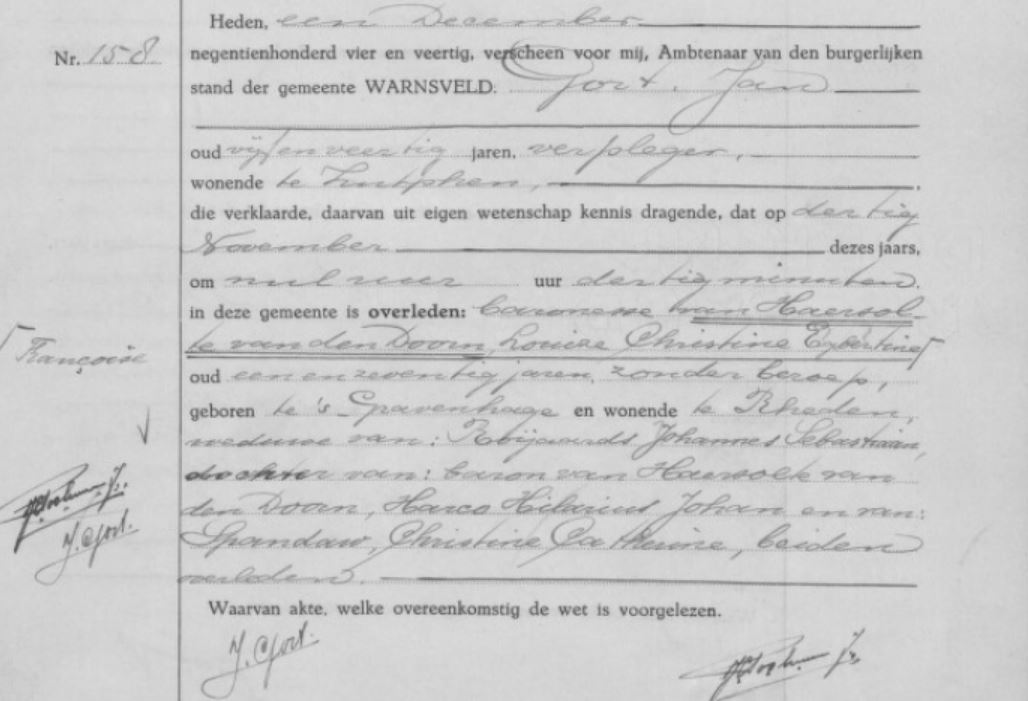 Heden, een December
Nr. 158
negentienhonderd vier en veertig, verscheen voor mij, Ambtenaar van den burgerlijken
stand der gemeente WARNSVELD: Gort, Jan
oud vijf en veertig jaren, verpleger,
wonende te Zutphen,
die verklaarde, daarvan uit eigen wetenschap kennis dragende, dat op dertig
November dezes jaars,
om nul uur uur dertig minuten,
in deze gemeente is overleden: baronesse van Haersol-
te van den Doorn, Louise Christine Egbertine
Françoise
oud een en zeventig jaren, zonder beroep,
geboren te 's Gravenhage en wonende te Rheden,
weduwe van: Roijaards Johannes Sebastiaan,
dochter van: baron van Haersolte van
den Doorn, Harco Hilarius Johan en van:
J. Gort.
Spandaw, Christine Catherine, beiden
overleden.
Waarvan akte, welke overeenkomstig de wet is voorgelezen.
J. Gort.